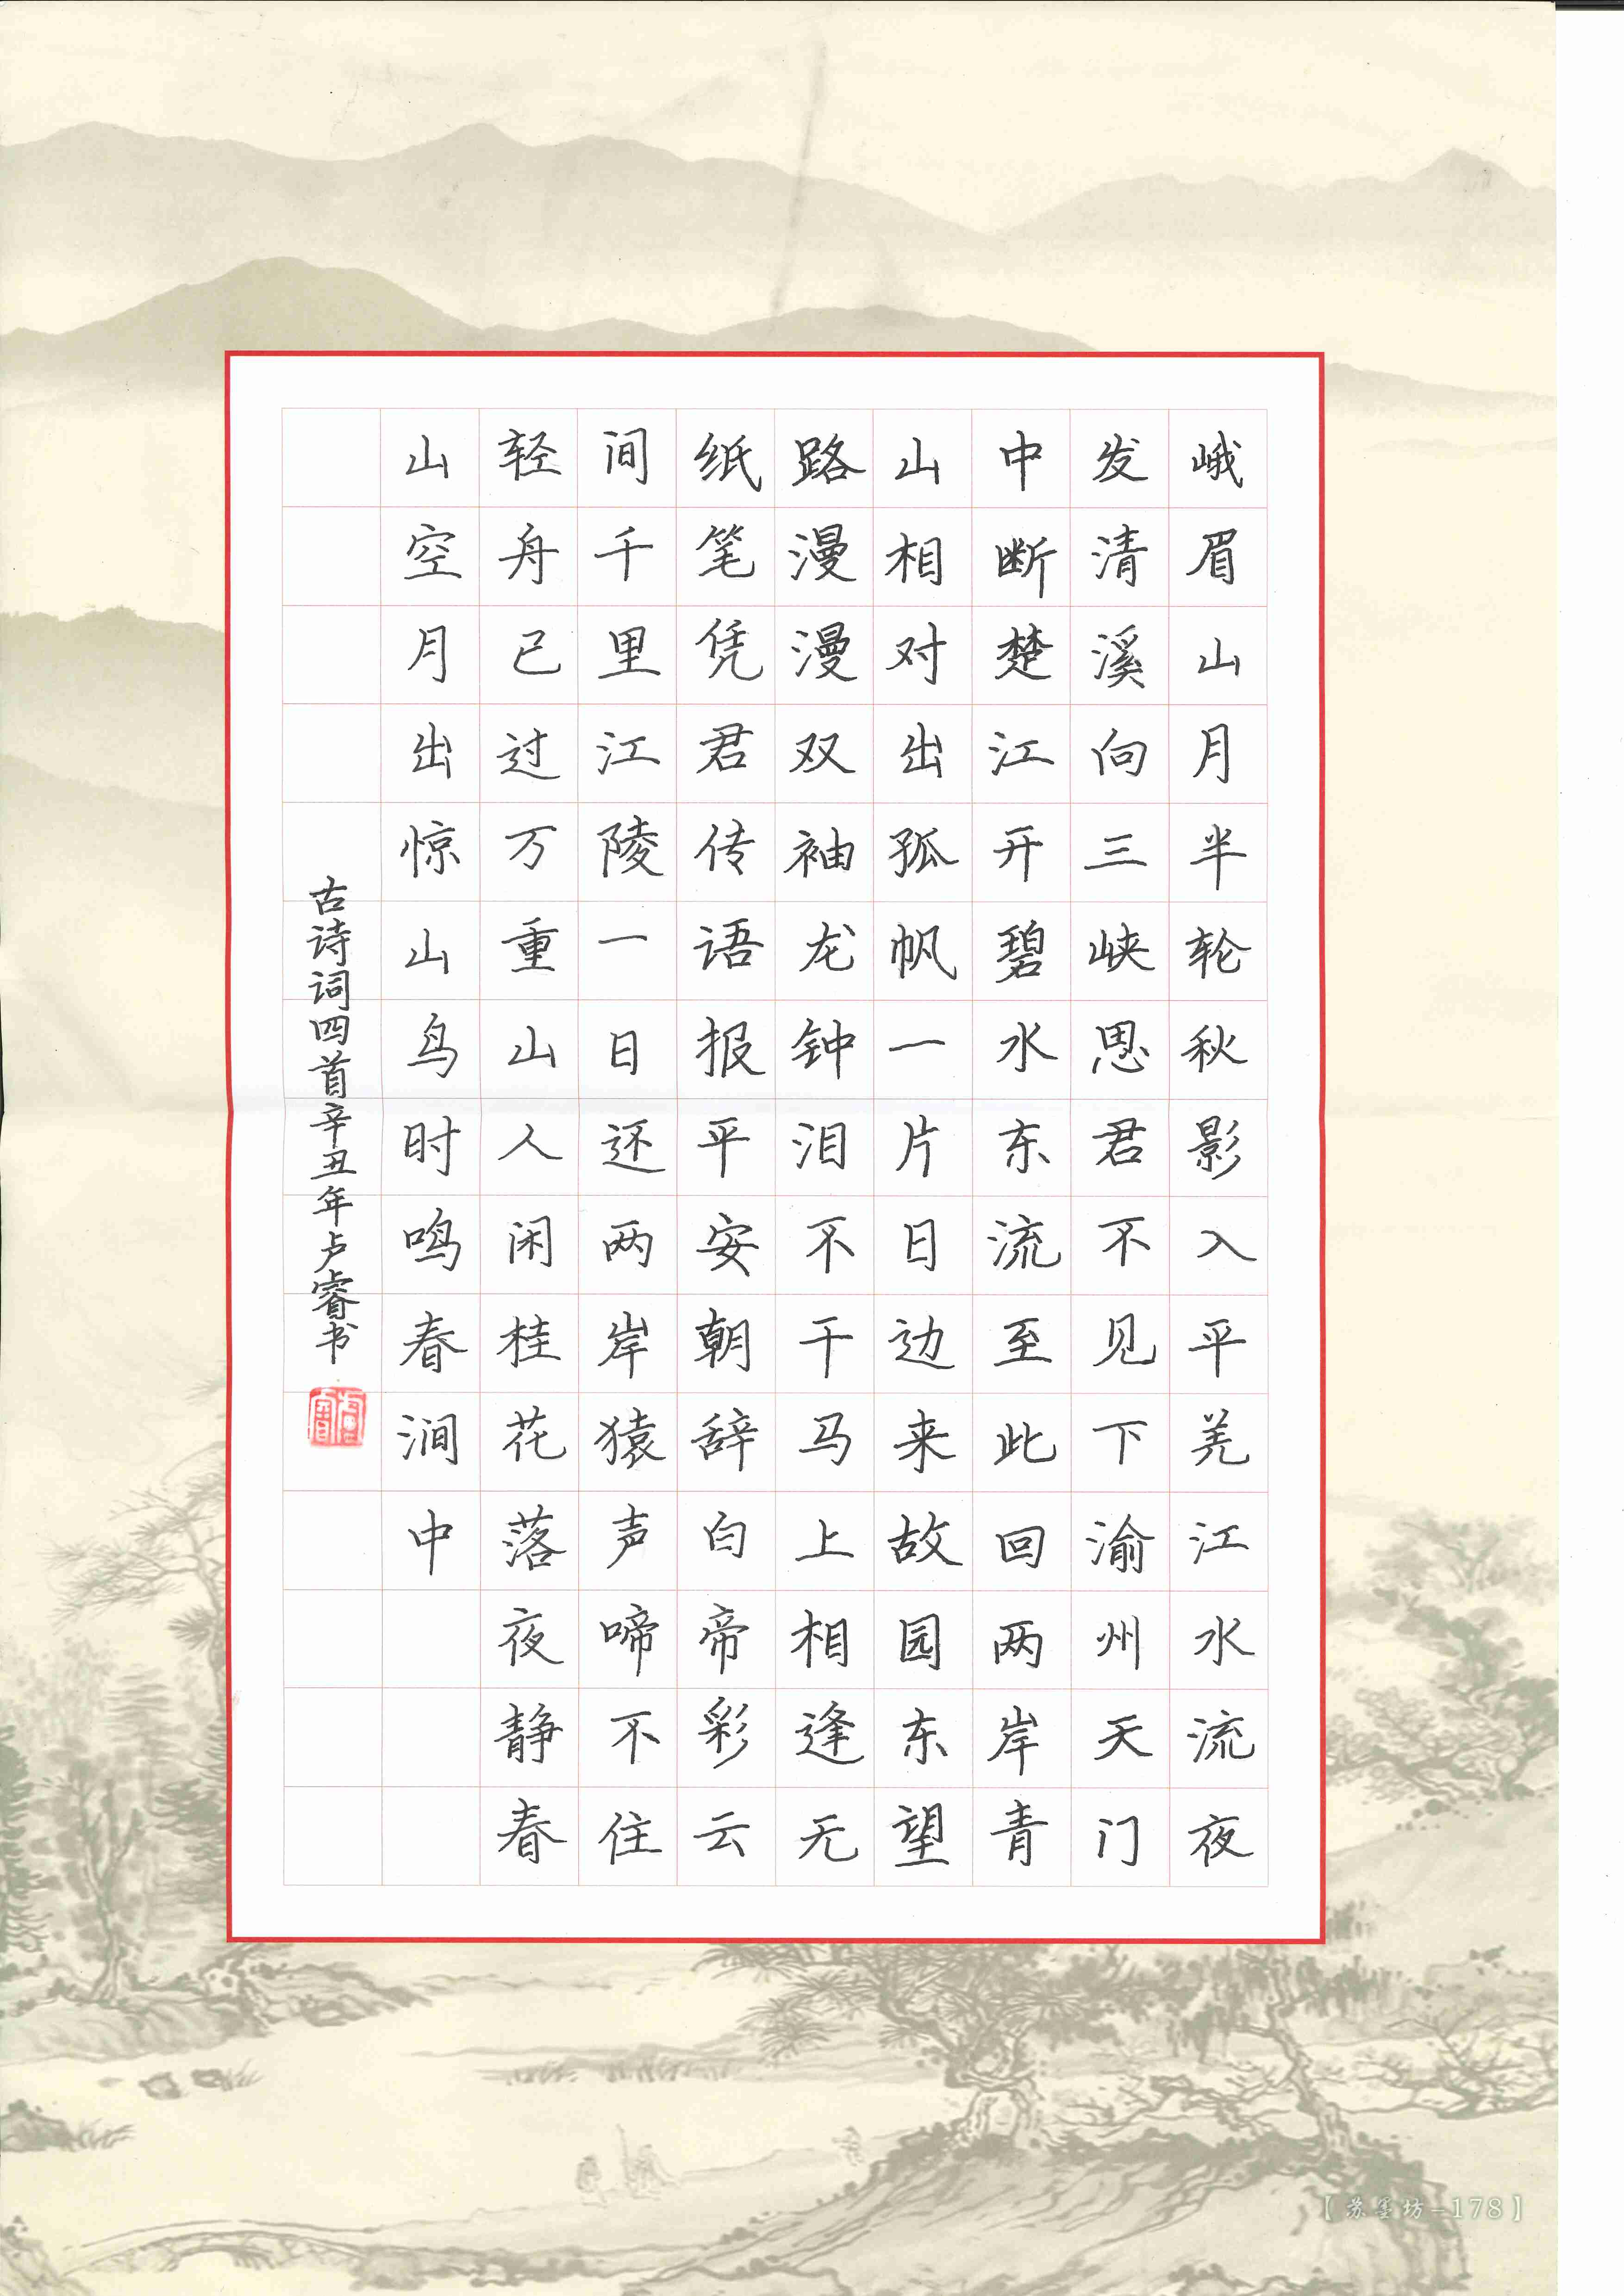 峨眉山月半轮秋影入平羌江水流夜
发清溪向三峡思君不见下渝州天门
中断楚江开碧水东流至此回两岸青
山相对出孤帆一片日边来故园东望
路漫漫双袖龙钟泪不干马上相逢无
纸笔凭君传语报平安朝辞白帝彩云
间千里江陵一日还两岸猿声啼不住
轻舟已过万重山人闲桂花落夜静春
山空月出惊山鸟时鸣春涧中
古诗词四首辛丑年卢睿书
卢睿
【苏墨坊-178】